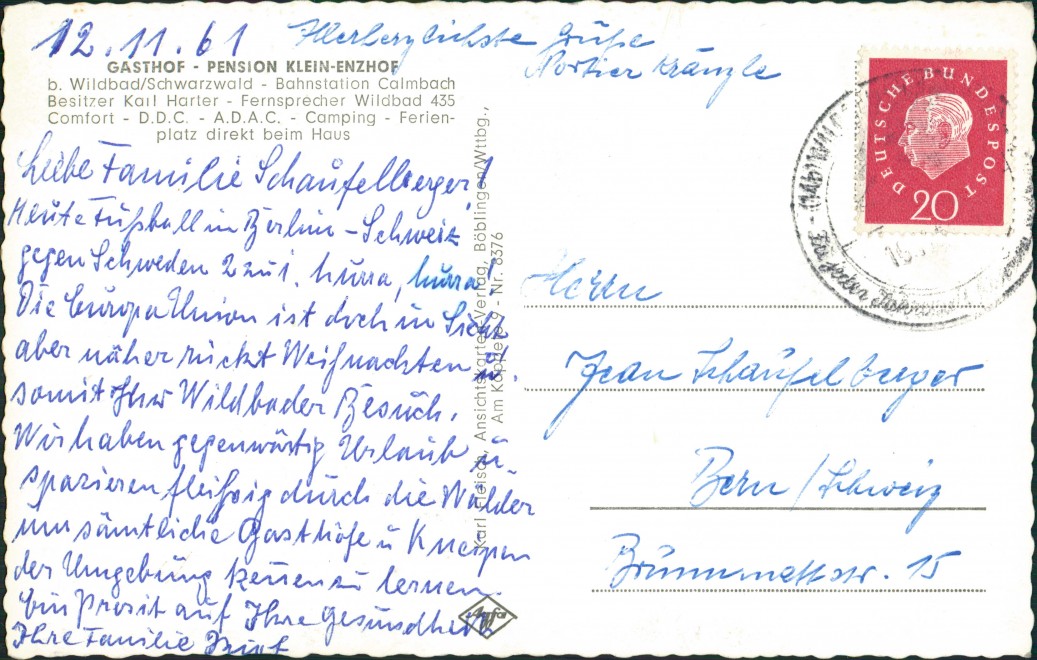 12.11.61
Allerherzlichste Grüße
Portier Kränzle
GASTHOF - PENSION KLEIN-ENZHOF
b. Wildbad/Schwarzwald - Bahnstation Calmbach
Besitzer Karl Harter - Fernsprecher Wildbad 435
Comfort - D.D.C. - A.D.A.C. - Camping - Ferien-
platz direkt beim Haus
Liebe Familie Schaufelberger!
Heute Fußball in Berlin - Schweiz
gegen Schweden 2 zu 1. hurra, hurra!
Die Europa Union ist doch in Sicht
aber näher rückt Weihnachten u.
somit Ihr Wildbader Besuch.
Wir haben gegenwärtig Urlaub u.
spazieren fleißig durch die Wälder
um sämtliche Gasthöfe u Kneipen
der Umgebung kennen zu lernen.
Ein Prosit auf Ihre Gesundheit
Ihre Familie
Karl Fleisch, Ansichtskarten-Verlag, Böblingen/Wttbg.,
Am Käppele 9 - Nr. 8376
Agfa
DEUTSCHE BUNDESPOST
20
Herrn
Jean Schaufelberger
Bern / Schweiz
Brunnmattstr. 15